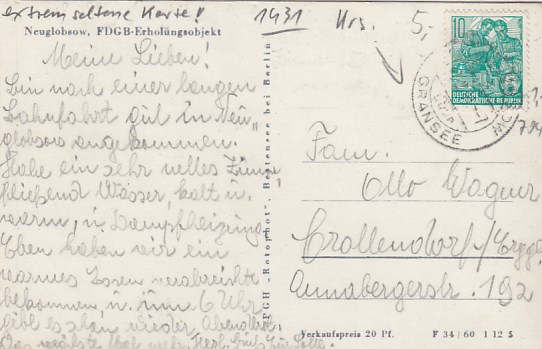 extrem seltene Karte!
1431 Hrs. 5,-
Neuglobsow, FDGB-Erholungsobjekt
Meine Lieben!
bin nach einer langen
Bahnfahrt gut in Neu"
globsow angekommen.
Habe ein sehr nettes Zim
fließend Wasser, kalt u.
warm, u. Dampfheizung
Eben haben wir ein
warmes Essen verabreicht
bekommen u. um 6 Uhr
gibt es schon wieder Abendbr.
Das nächste Mal mehr. Herzl.
PGH „Rotophot", Bestensee bei Berlin
10
DEUTSCHE
DEMOKRATISCHE REPUBLIK
GRANSEE
Fam.
Otto Wagner
Crottendorf/Erzgeb
Annabergerstr. 192
Verkaufspreis 20 Pf. F 34/60 1 12 S